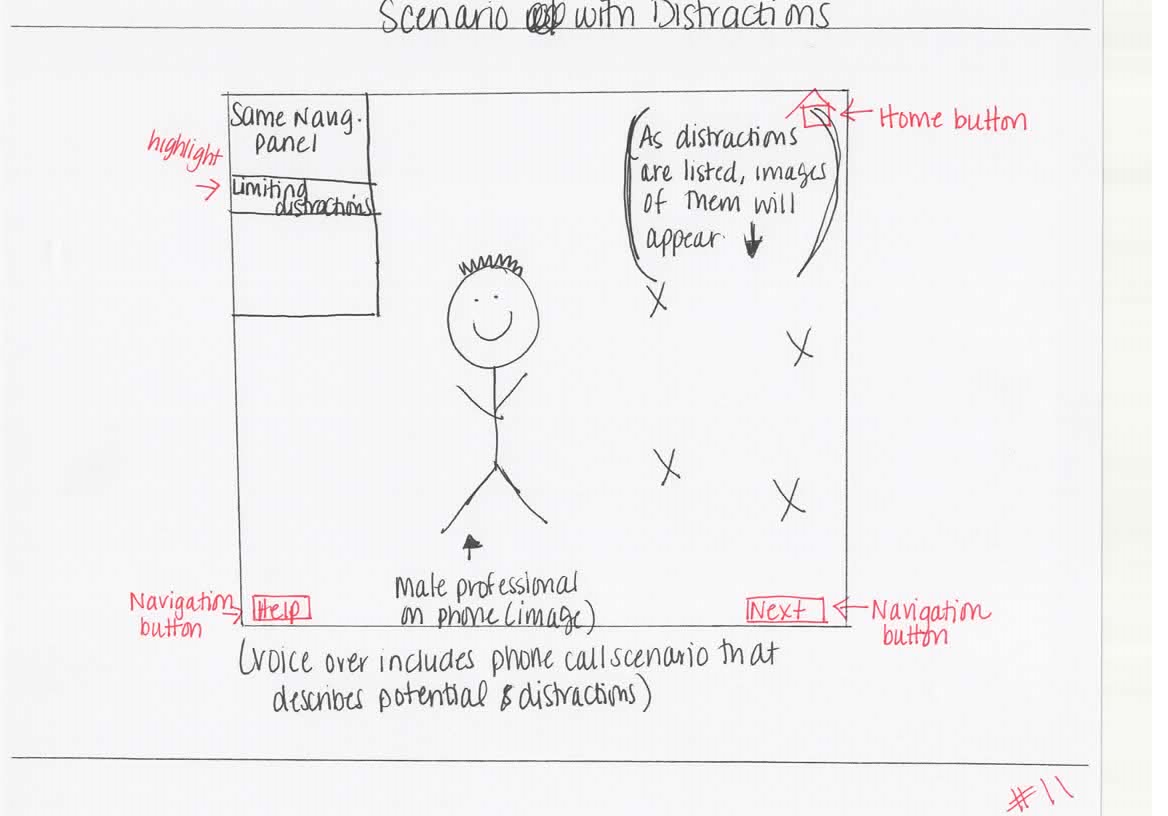 Scenario with Distractions
Same Navg.
panel
highlight
Limiting
distractions
As distractions
are listed, images
of them will
appear.
Home button
male professional
on phone (image)
Navigation
button
Help
Next
Navigation
button
(voice over includes phone call scenario that
describes potential distractions)
#11